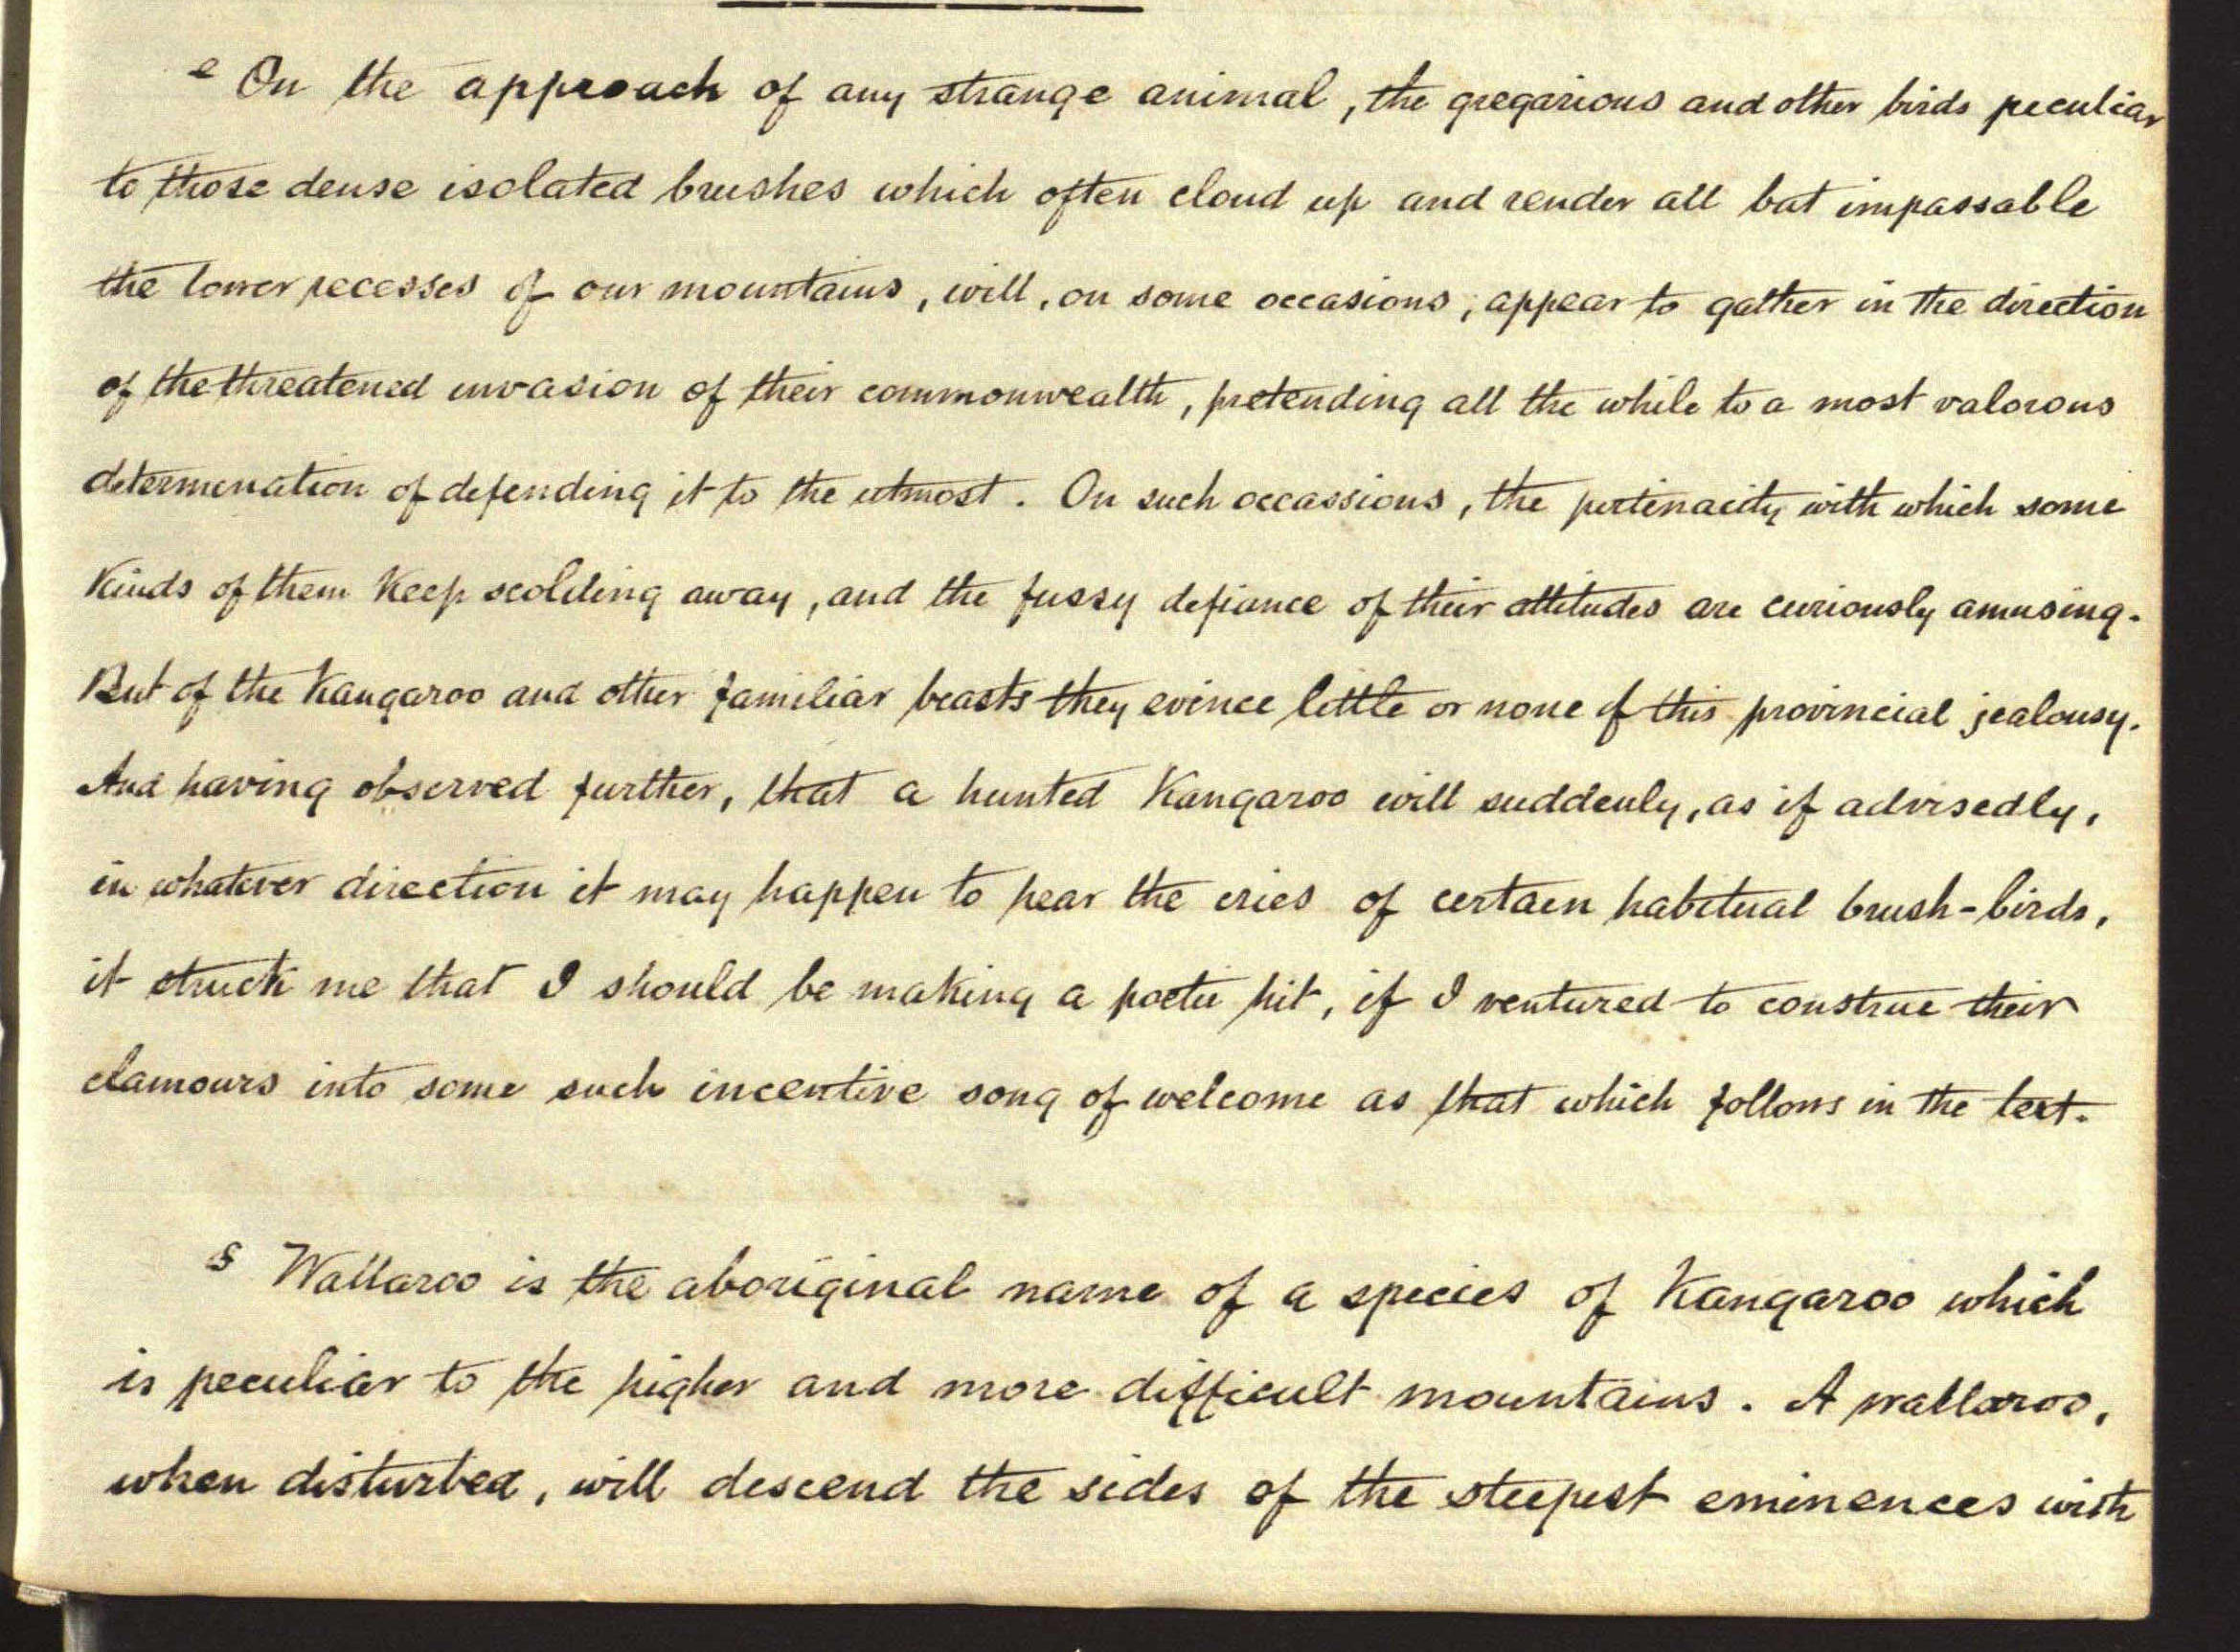 e On the approach of any strange animal, the gregarious and other birds peculiar
to those dense isolated brushes which often cloud up and render all but impassable
the lower recesses of our mountains, will, on some occasions, appear to gather in the direction
of the threatened invasion of their commonwealth, pretending all the while to a most valorous
determination of defending it to the utmost. On such occassions, the pertinacity with which some
kinds of them keep scolding away, and the fussy defiance of their attitudes are curiously amusing.
But of the Kangaroo and other familiar beasts they evince little or none of this provincial jealousy.
And having observed further, that a hunted Kangaroo will suddenly, as if advisedly,
in whatever direction it may happen to hear the cries of certain habitual brush-birds,
it struck me that I should be making a poetic hit, if I ventured to construe their
clamours into some such incentive song of welcome as that which follows in the text.
§ Wallaroo is the aboriginal name of a species of Kangaroo which
is peculiar to the higher and more difficult mountains. A wallaroo,
when disturbed, will descend the sides of the steepest eminences with